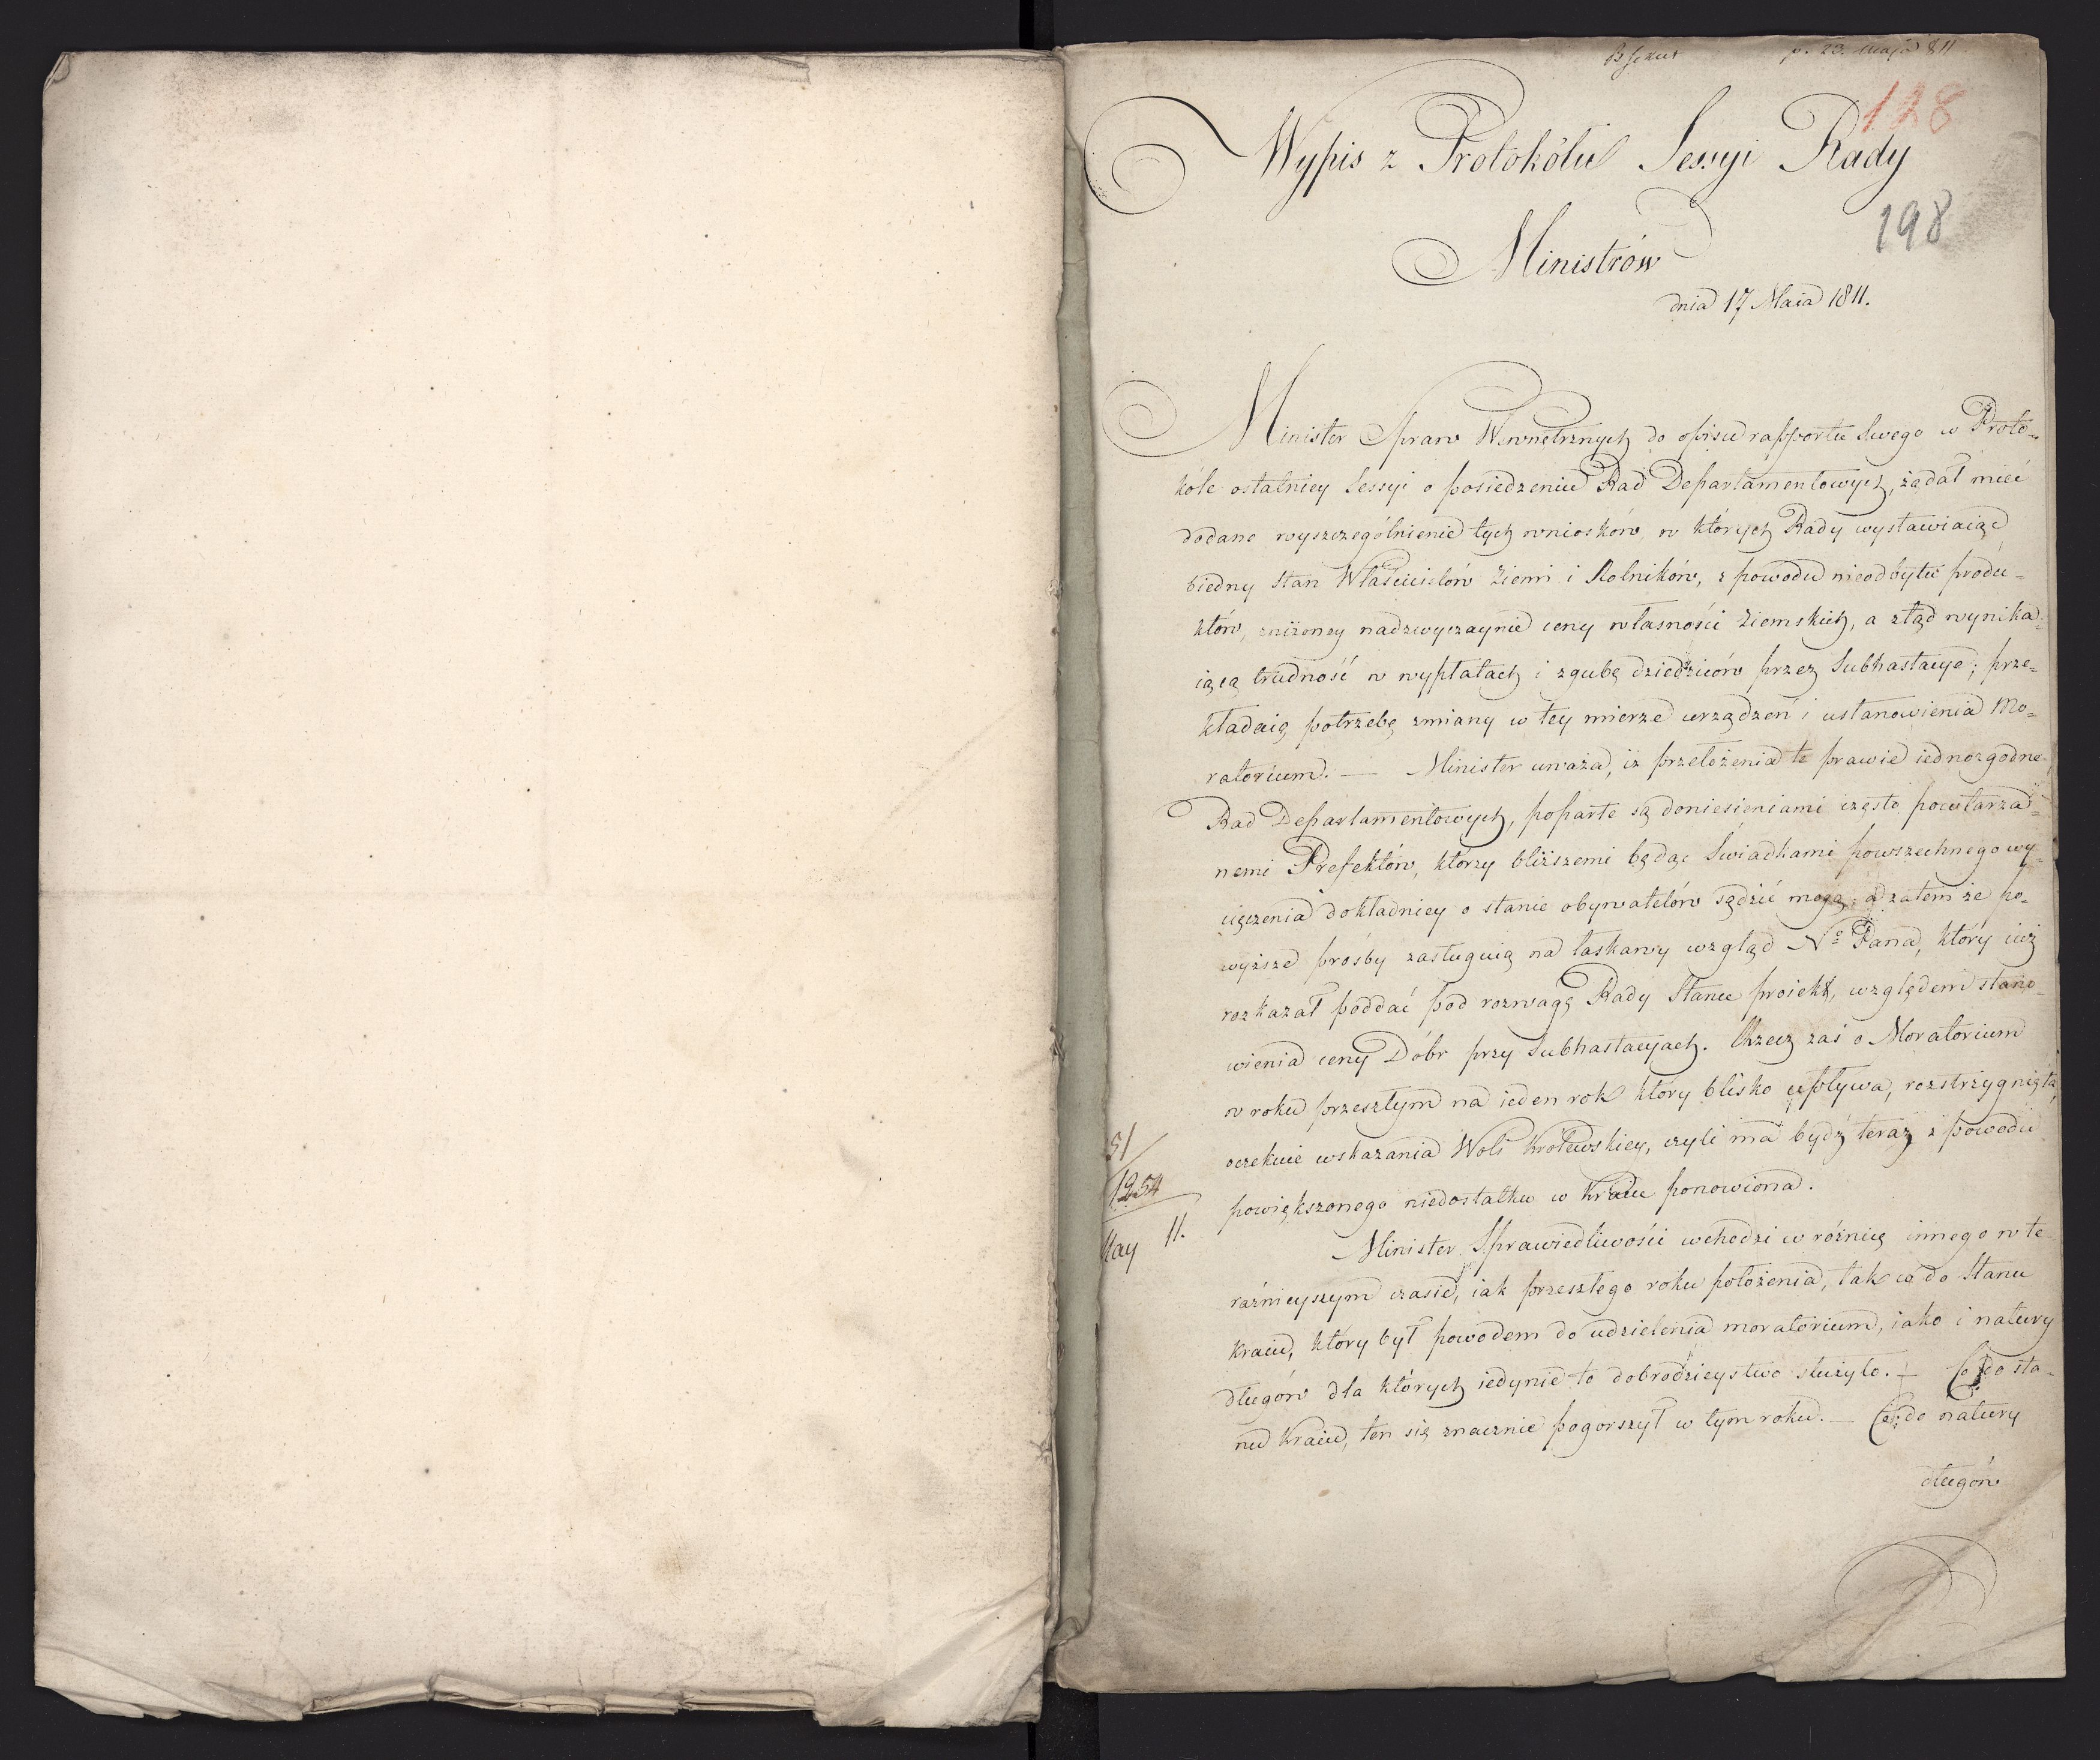 p. 23. Maja 811
128
Wypis z Protokółu Sessyi Rady
198
Ministrów
dnia 17 Maia 1811.
Minister Spraw Wewnętrznych do opisu rapportu Swego w Proto-
kóle ostatniey Sessyi o posiedzeniu Rad Departamentowych, żądał mieć
dodane wyszczególnienie tych wniosków, w których Rady wystawiaiąc
biedny stan Właścicielów Ziemi i Rolników, z powodu nieodbytu produ-
któw, zniżoney nadzwyczaynie ceny własności ziemskich, a ztąd wynika-
iącą trudność w wypłatach i zgubę dziedziców przez Subhastacye; prze-
kładaią potrzebę zmiany w tey mierze urządzeń i ustanowienia Mo-
ratorium. — Minister uważa, iż przełożenia te prawie iednozgodne
Rad Departamentowych, poparte są doniesieniami często powtarza-
nemi Prefektów, którzy bliższemi będąc Świadkami powszechnego wy-
cięczenia dokładniey o stanie obywatelów sądzić mogą; a zatem że po-
wyższe prośby zasługuią na łaskawy wzgląd No Pana, który iuż
rozkazał poddać pod rozwagę Rady Stanu proiekt, względem stano-
wienia ceny Dóbr przy Subhastacyach. Rzecz zaś o Moratorium
w roku przeszłym na ieden rok który blisko upływa, rozstrzygnięta,
oczekuie wskazania Woli Królewskiey, czyli ma bydź teraz z powodu
powiększonego niedostatku w Kraiu ponowiona.
51
1254
May 11.
Minister Sprawiedliwości wchodzi w różnicę innego w te-
raźnieyszym czasie, iak przeszłego roku położenia, tak co do Stanu
Kraiu, który był powodem do udzielenia moratorium, iako i natury
długów dla których iedynie to dobrodzieystwo służyło. — Co do sta-
nu Kraiu, ten się znacznie pogorszył w tym roku. — Co do natury
długów